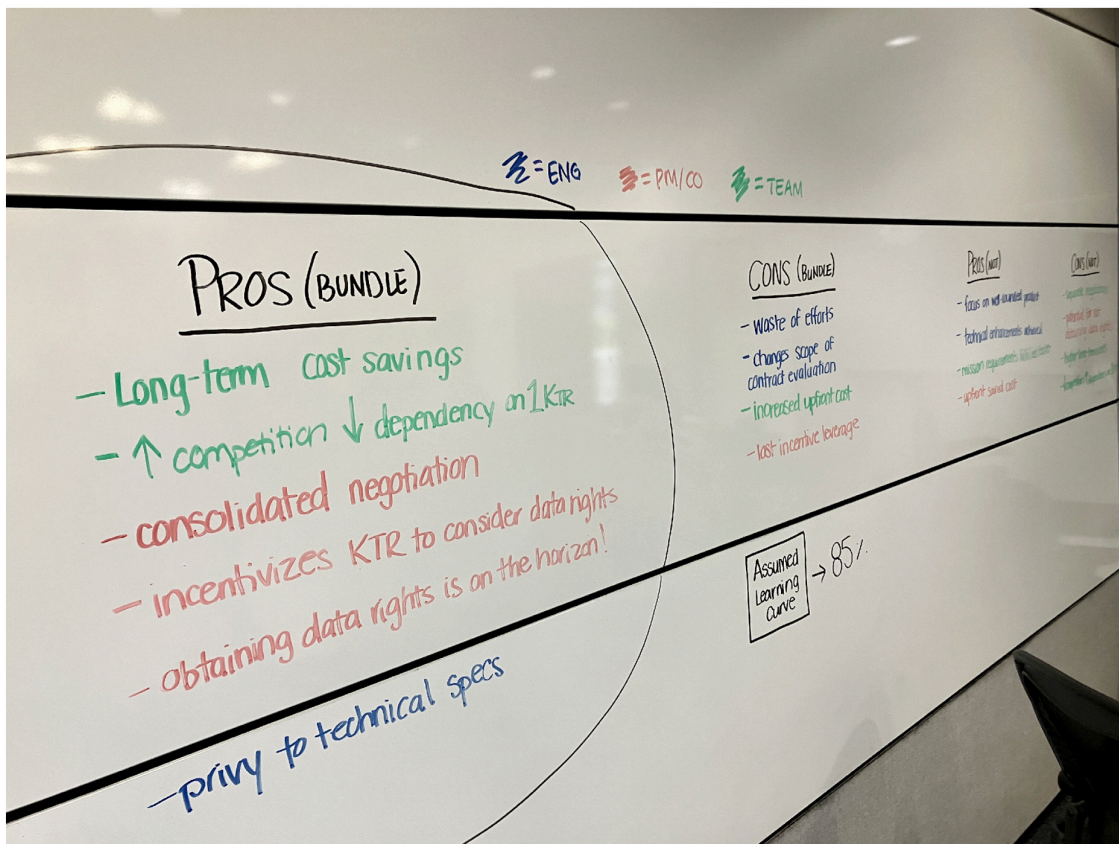 = ENG = PM/CO = TEAM
PROS (BUNDLE)
- Long-term cost savings
- ↑ competition ↓ dependency on 1 KTR
- consolidated negotiation
- incentivizes KTR to consider data rights
- obtaining data rights is on the horizon!
- privy to technical specs
CONS (BUNDLE)
- waste of efforts
- changes scope of
contract evaluation
- increased upfront cost
- lost incentive leverage
Assumed
Learning
Curve
→ 85%
PROS (NOT)
- focus on well-rounded product
- technical enhancements achieved
- mission requirements
- upfront saved cost
CONS (NOT)
- separate negotiations
- potential for not
obtaining data rights
- higher long-term cost